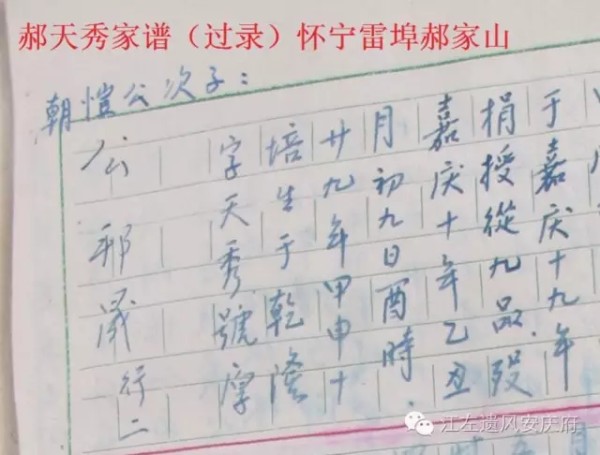 郝天秀家谱（过录）怀宁雷埠郝家山
朝愷公次子：
公邦行二
字天秀號厚
培生于乾隆
廿九年甲申十
月初九日酉時.
嘉庆十年乙丑
捐授從九品.殁
于嘉庆十九年
江左遗风安庆府